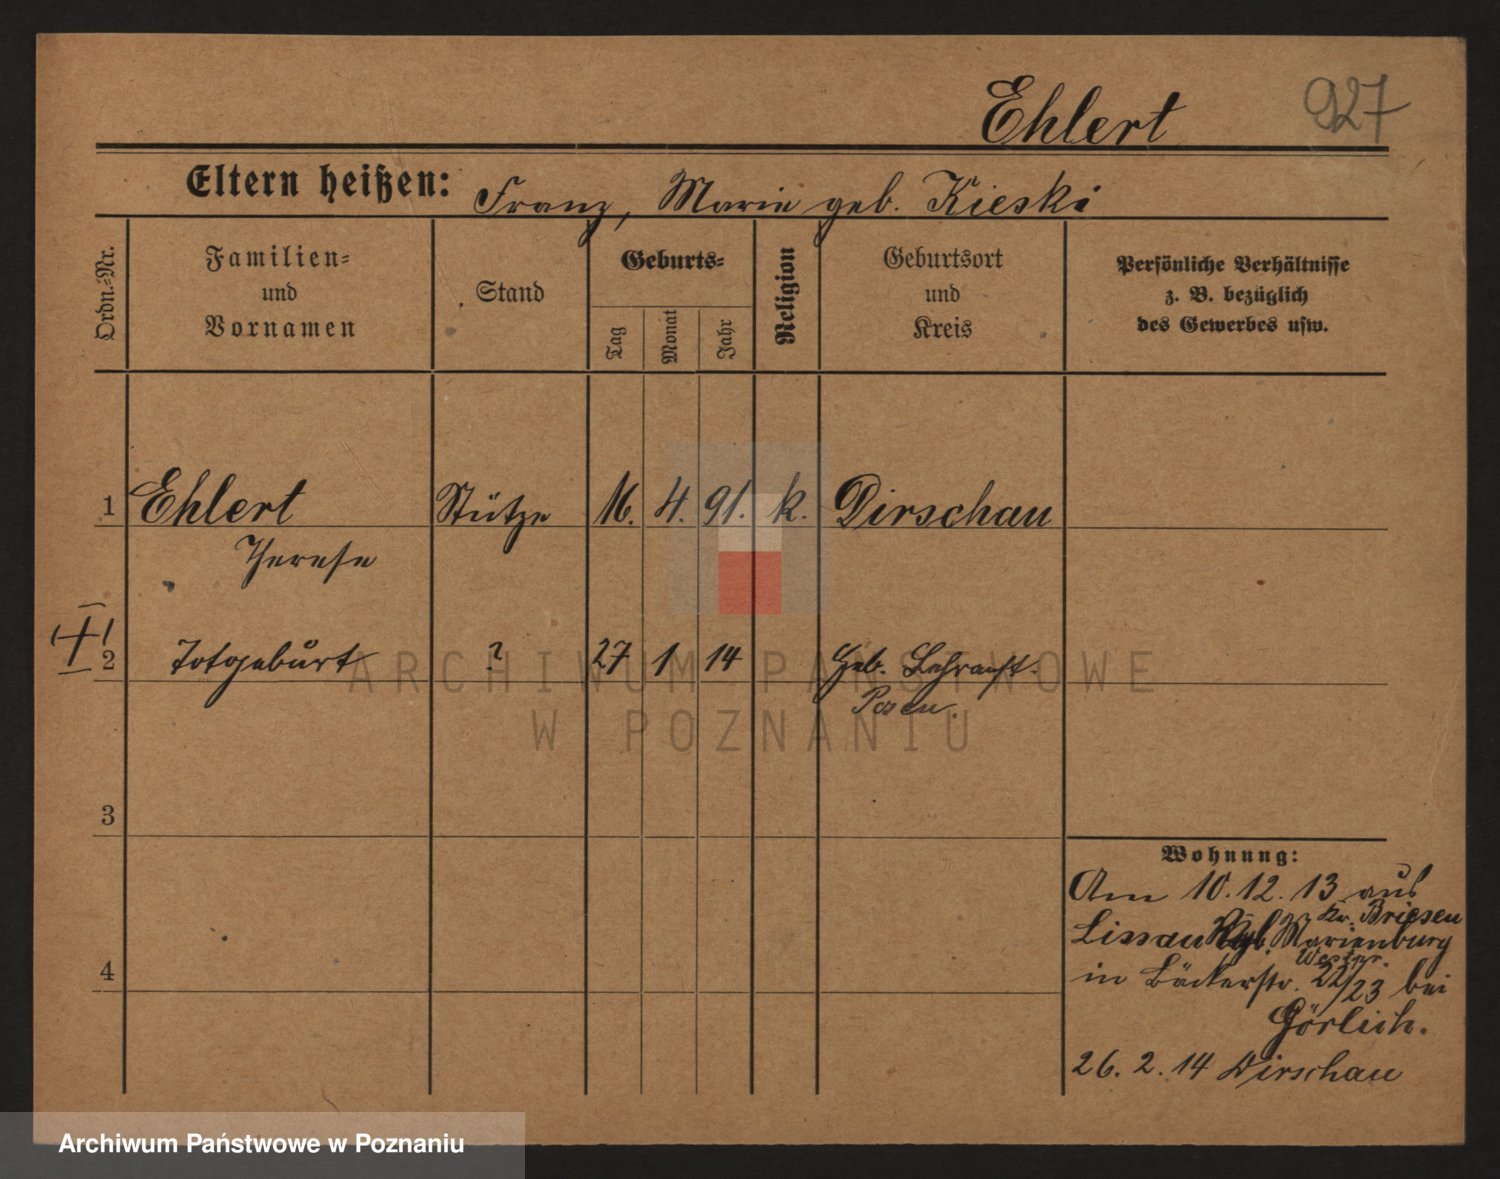 Ehlert 927
Eltern heißen: Franz, Marie geb. Kieski
Ordn.=Nr.
Familien=
und
Vornamen
Stand
Geburts=
Tag
Monat
Jahr
Religion
Geburtsort
und
Kreis
Persönliche Verhältnisse
z. B. bezüglich
des Gewerbes usw.
1 Ehlert Stütze 16. 4. 91. k. Dirschau
Therese
2 Totgeburt ? 27 1 14 Geb. Lehranst.
Posen.
3
4
Wohnung:
Am 10.12.13 aus
Kr. Briesen
Lissau Marienburg
Westpr.
in Bäckerstr. 22/23 bei
Görlich.
26. 2. 14 Dirschau
ARCHIWUM PAŃSTWOWE
W POZNANIU
Archiwum Państwowe w Poznaniu